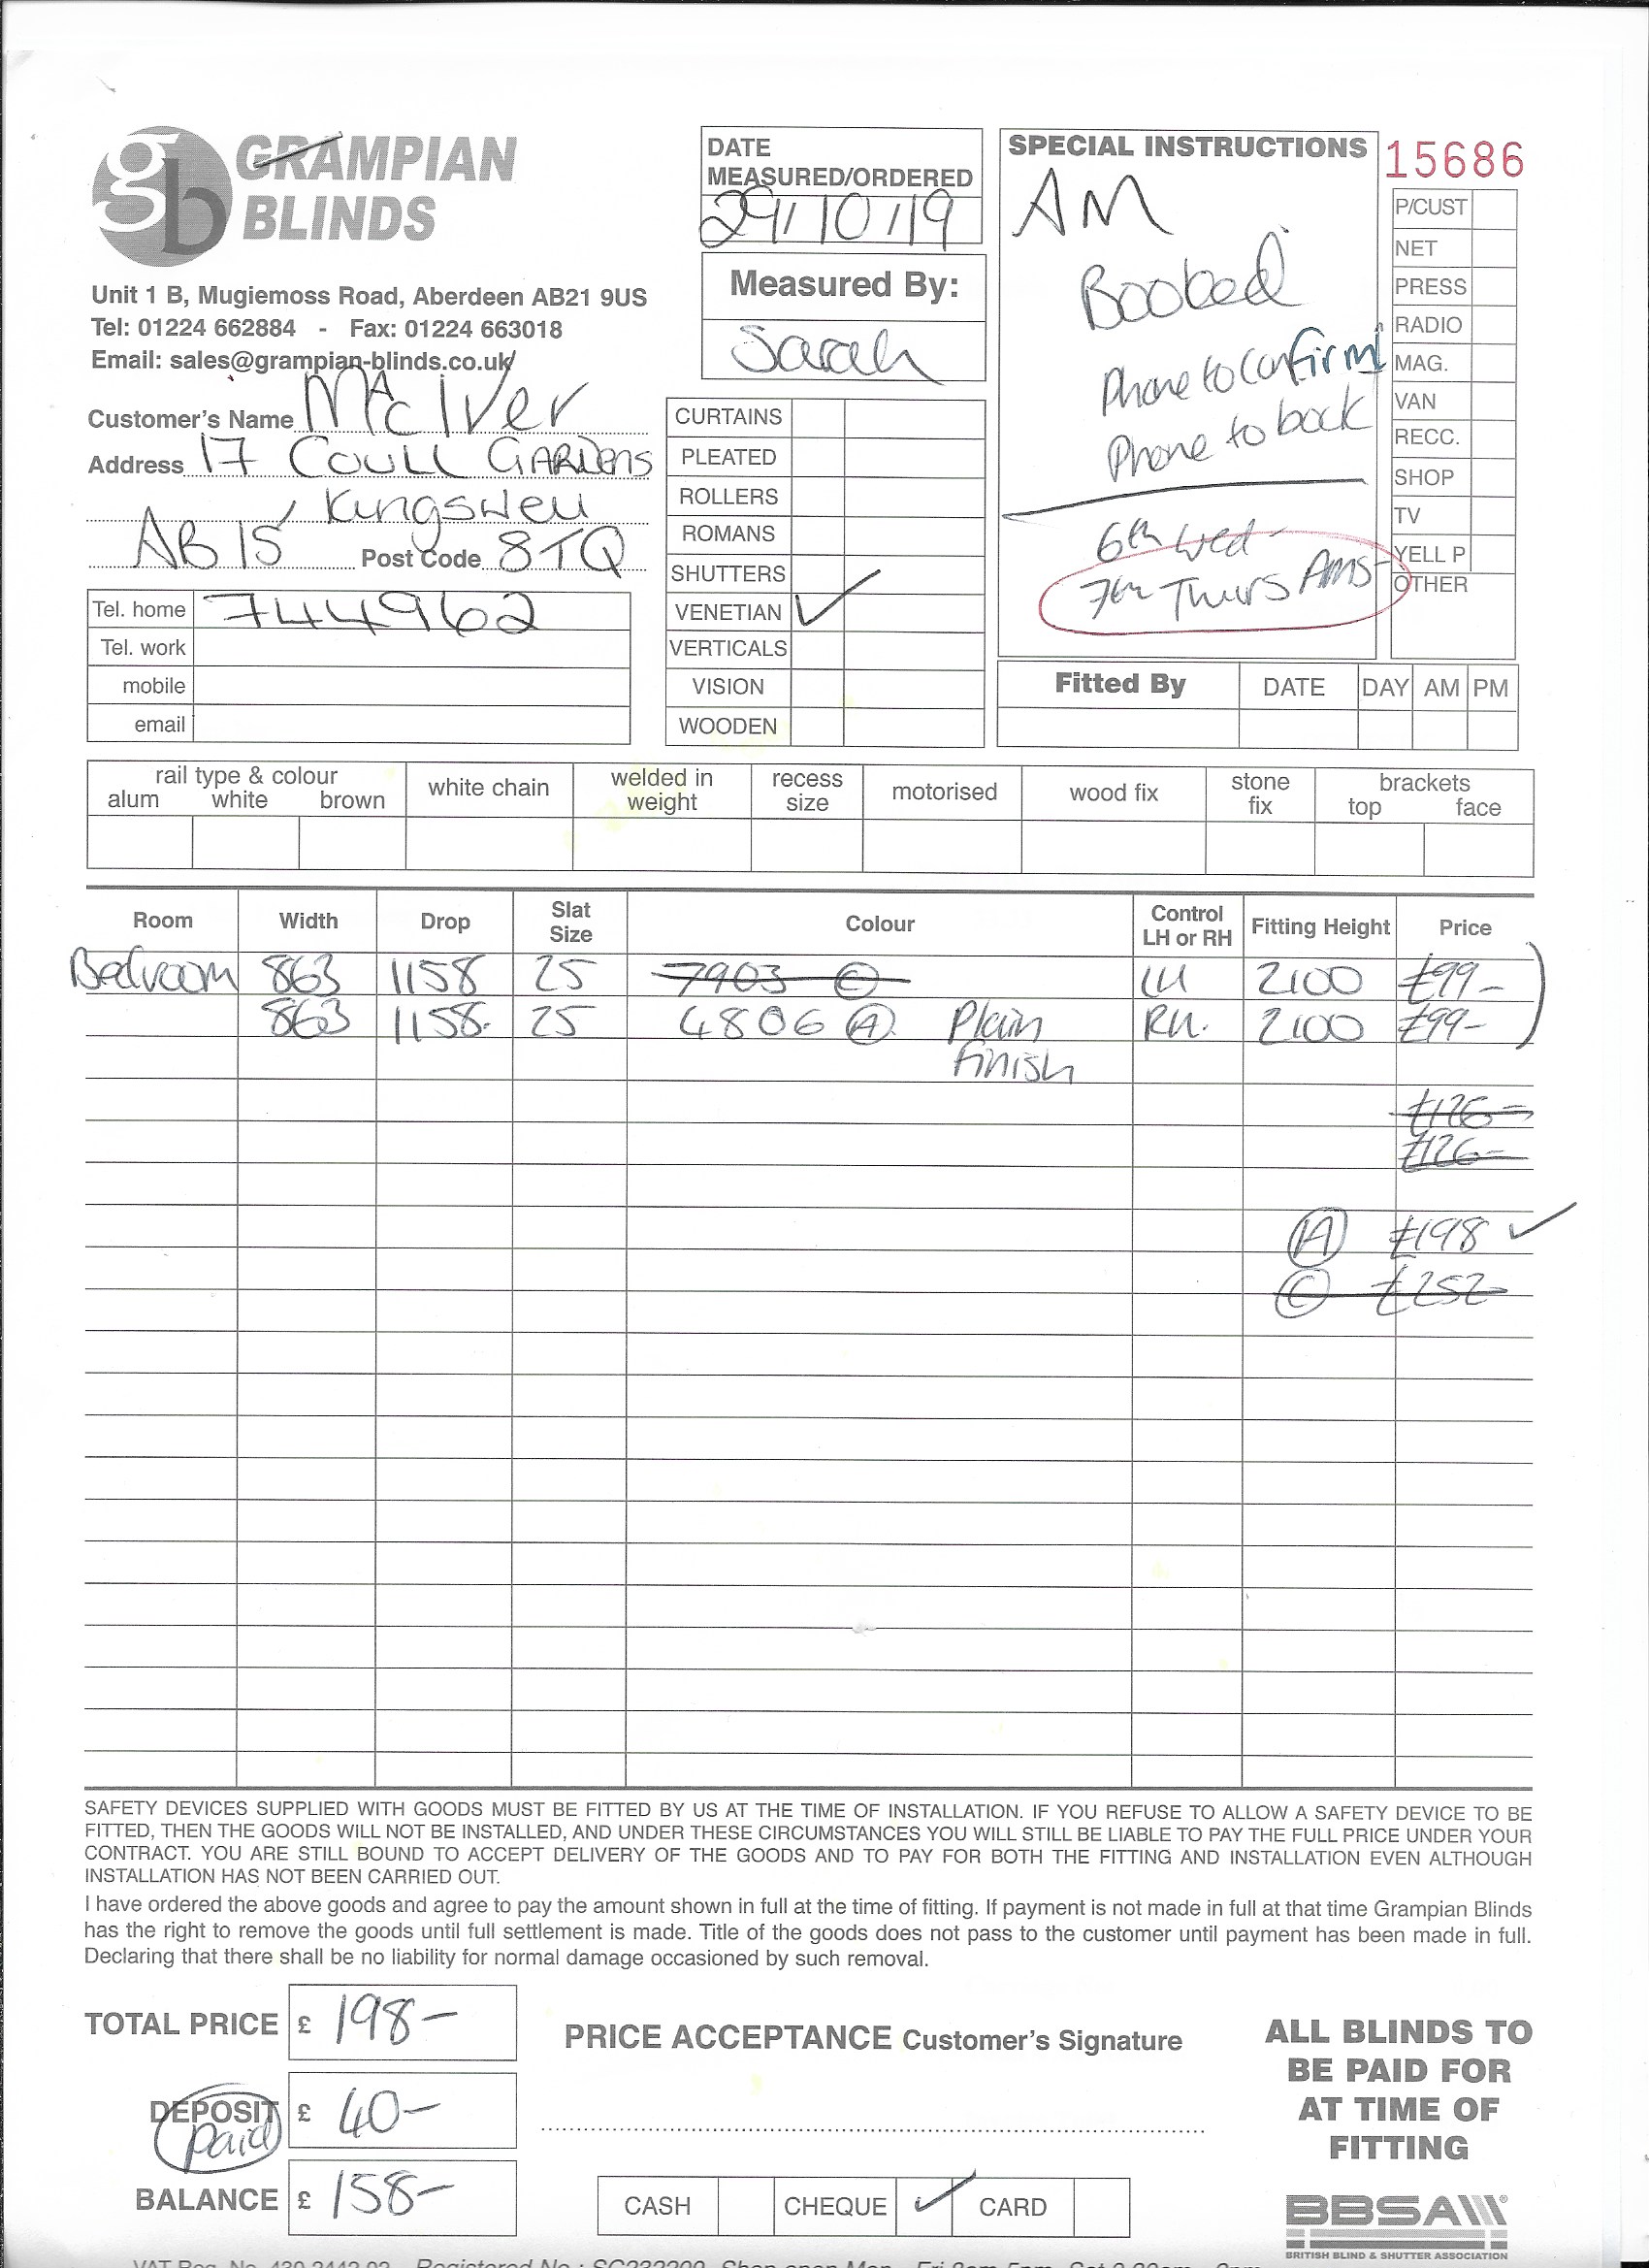 gb GRAMPIAN
BLINDS
Unit 1 B, Mugiemoss Road, Aberdeen AB21 9US
Tel: 01224 662884 - Fax: 01224 663018
Email: sales@grampian-blinds.co.uk
Customer's Name MacIver
Address 17 COULL GARDENS
Kingswell
AB15 Post Code 8TQ
Tel. home 744962
Tel. work
mobile
email
DATE
MEASURED/ORDERED
29/10/19
Measured By:
Sarah
CURTAINS
PLEATED
ROLLERS
ROMANS
SHUTTERS
VENETIAN ✓
VERTICALS
VISION
WOODEN
SPECIAL INSTRUCTIONS
AM
Booked
Phone to confirm
Phone to book
6th Wed -
7th Thurs Ams -
15686
P/CUST
NET
PRESS
RADIO
MAG.
VAN
RECC.
SHOP
TV
YELL P
OTHER
Fitted By DATE DAY AM PM
rail type & colour
alum white brown
white chain
welded in
weight
recess
size
motorised
wood fix
stone
fix
brackets
top face
Room Width Drop Slat Size Colour Control LH or RH Fitting Height Price
Bedroom 863 1158 25 7903 C LH 2100 £99-
863 1158. 25 4806 A Plain RH. 2100 £99-
finish
£126-
£126-
A £198 ✓
C £252-
SAFETY DEVICES SUPPLIED WITH GOODS MUST BE FITTED BY US AT THE TIME OF INSTALLATION. IF YOU REFUSE TO ALLOW A SAFETY DEVICE TO BE
FITTED, THEN THE GOODS WILL NOT BE INSTALLED, AND UNDER THESE CIRCUMSTANCES YOU WILL STILL BE LIABLE TO PAY THE FULL PRICE UNDER YOUR
CONTRACT. YOU ARE STILL BOUND TO ACCEPT DELIVERY OF THE GOODS AND TO PAY FOR BOTH THE FITTING AND INSTALLATION EVEN ALTHOUGH
INSTALLATION HAS NOT BEEN CARRIED OUT.
I have ordered the above goods and agree to pay the amount shown in full at the time of fitting. If payment is not made in full at that time Grampian Blinds
has the right to remove the goods until full settlement is made. Title of the goods does not pass to the customer until payment has been made in full.
Declaring that there shall be no liability for normal damage occasioned by such removal.
TOTAL PRICE £ 198-
DEPOSIT £ 40-
paid
BALANCE £ 158-
PRICE ACCEPTANCE Customer's Signature
CASH CHEQUE ✓ CARD
ALL BLINDS TO
BE PAID FOR
AT TIME OF
FITTING
BBSA
BRITISH BLIND & SHUTTER ASSOCIATION